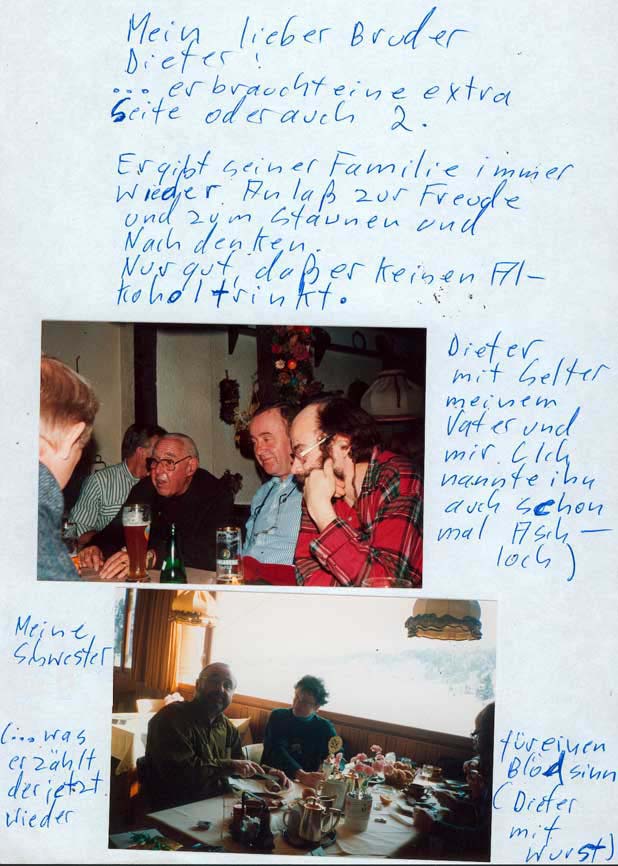 Mein lieber Bruder
Dieter!
... er braucht eine extra
Seite oder auch 2.
Er gibt seiner Familie immer
wieder Anlaß zur Freude
und zum Staunen und
Nachdenken.
Nur gut, daß er keinen Al-
kohol trinkt.
Dieter
mit Selter
meinem
Vater und
mir. (Ich
nannte ihn
auch schon
mal Asch-
loch)
Meine
Schwester
(... was
erzählt
der jetzt
wieder
für einen
Blödsinn
(Dieter
mit
Wurst)